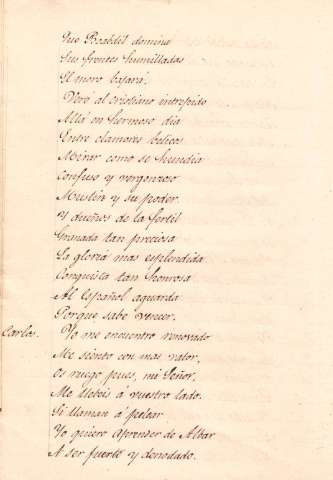 Que Boabdil domina
Sus frentes humilladas
El moro bajará.
Veré al cristiano intrepido
Allá en hermoso dia
Entre clamores belicos
Mirar como se hundia
Confuso y vergonzoso
Muslin y su poder.
Y dueños de la fertil
Granada tan preciosa
La gloria mas esplendida
Conquista tan honrosa
Al español aguarda
Porque sabe vencer.
Carlos. Yo me encuentro renovado
Me siento con mas valor,
Os ruego pues, mi Señor,
Me lleveis á vuestro lado.
Si llaman á pelear
Yo quiero aprender de Albar
A ser fuerte y denodado.